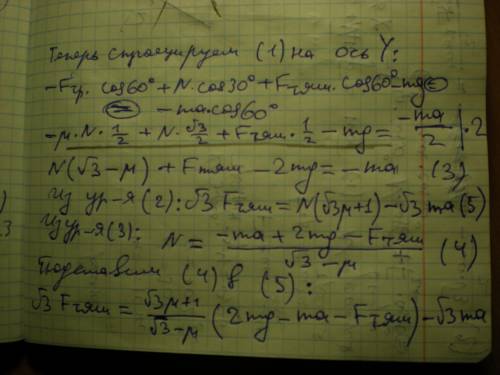 Теперь спроецируем (1) на ось Y:
-Fтр. cos60° + N·cos30° + Fтяги·cos60° - mg =
= - ma·cos60°
-μ·N·1/2 + N·√3/2 + Fтяги·1/2 - mg = -ma/2 |·2
N(√3-μ) + Fтяги - 2mg = - ma (3)
Из ур-я (2): √3 Fтяги = N(√3μ+1) - √3 ma (5)
Из ур-я (3): N = (-ma + 2mg - Fтяги)/(√3-μ) (4)
Подставим (4) в (5):
√3 Fтяги = (√3μ+1)/(√3-μ) (2mg - ma - Fтяги) - √3 ma